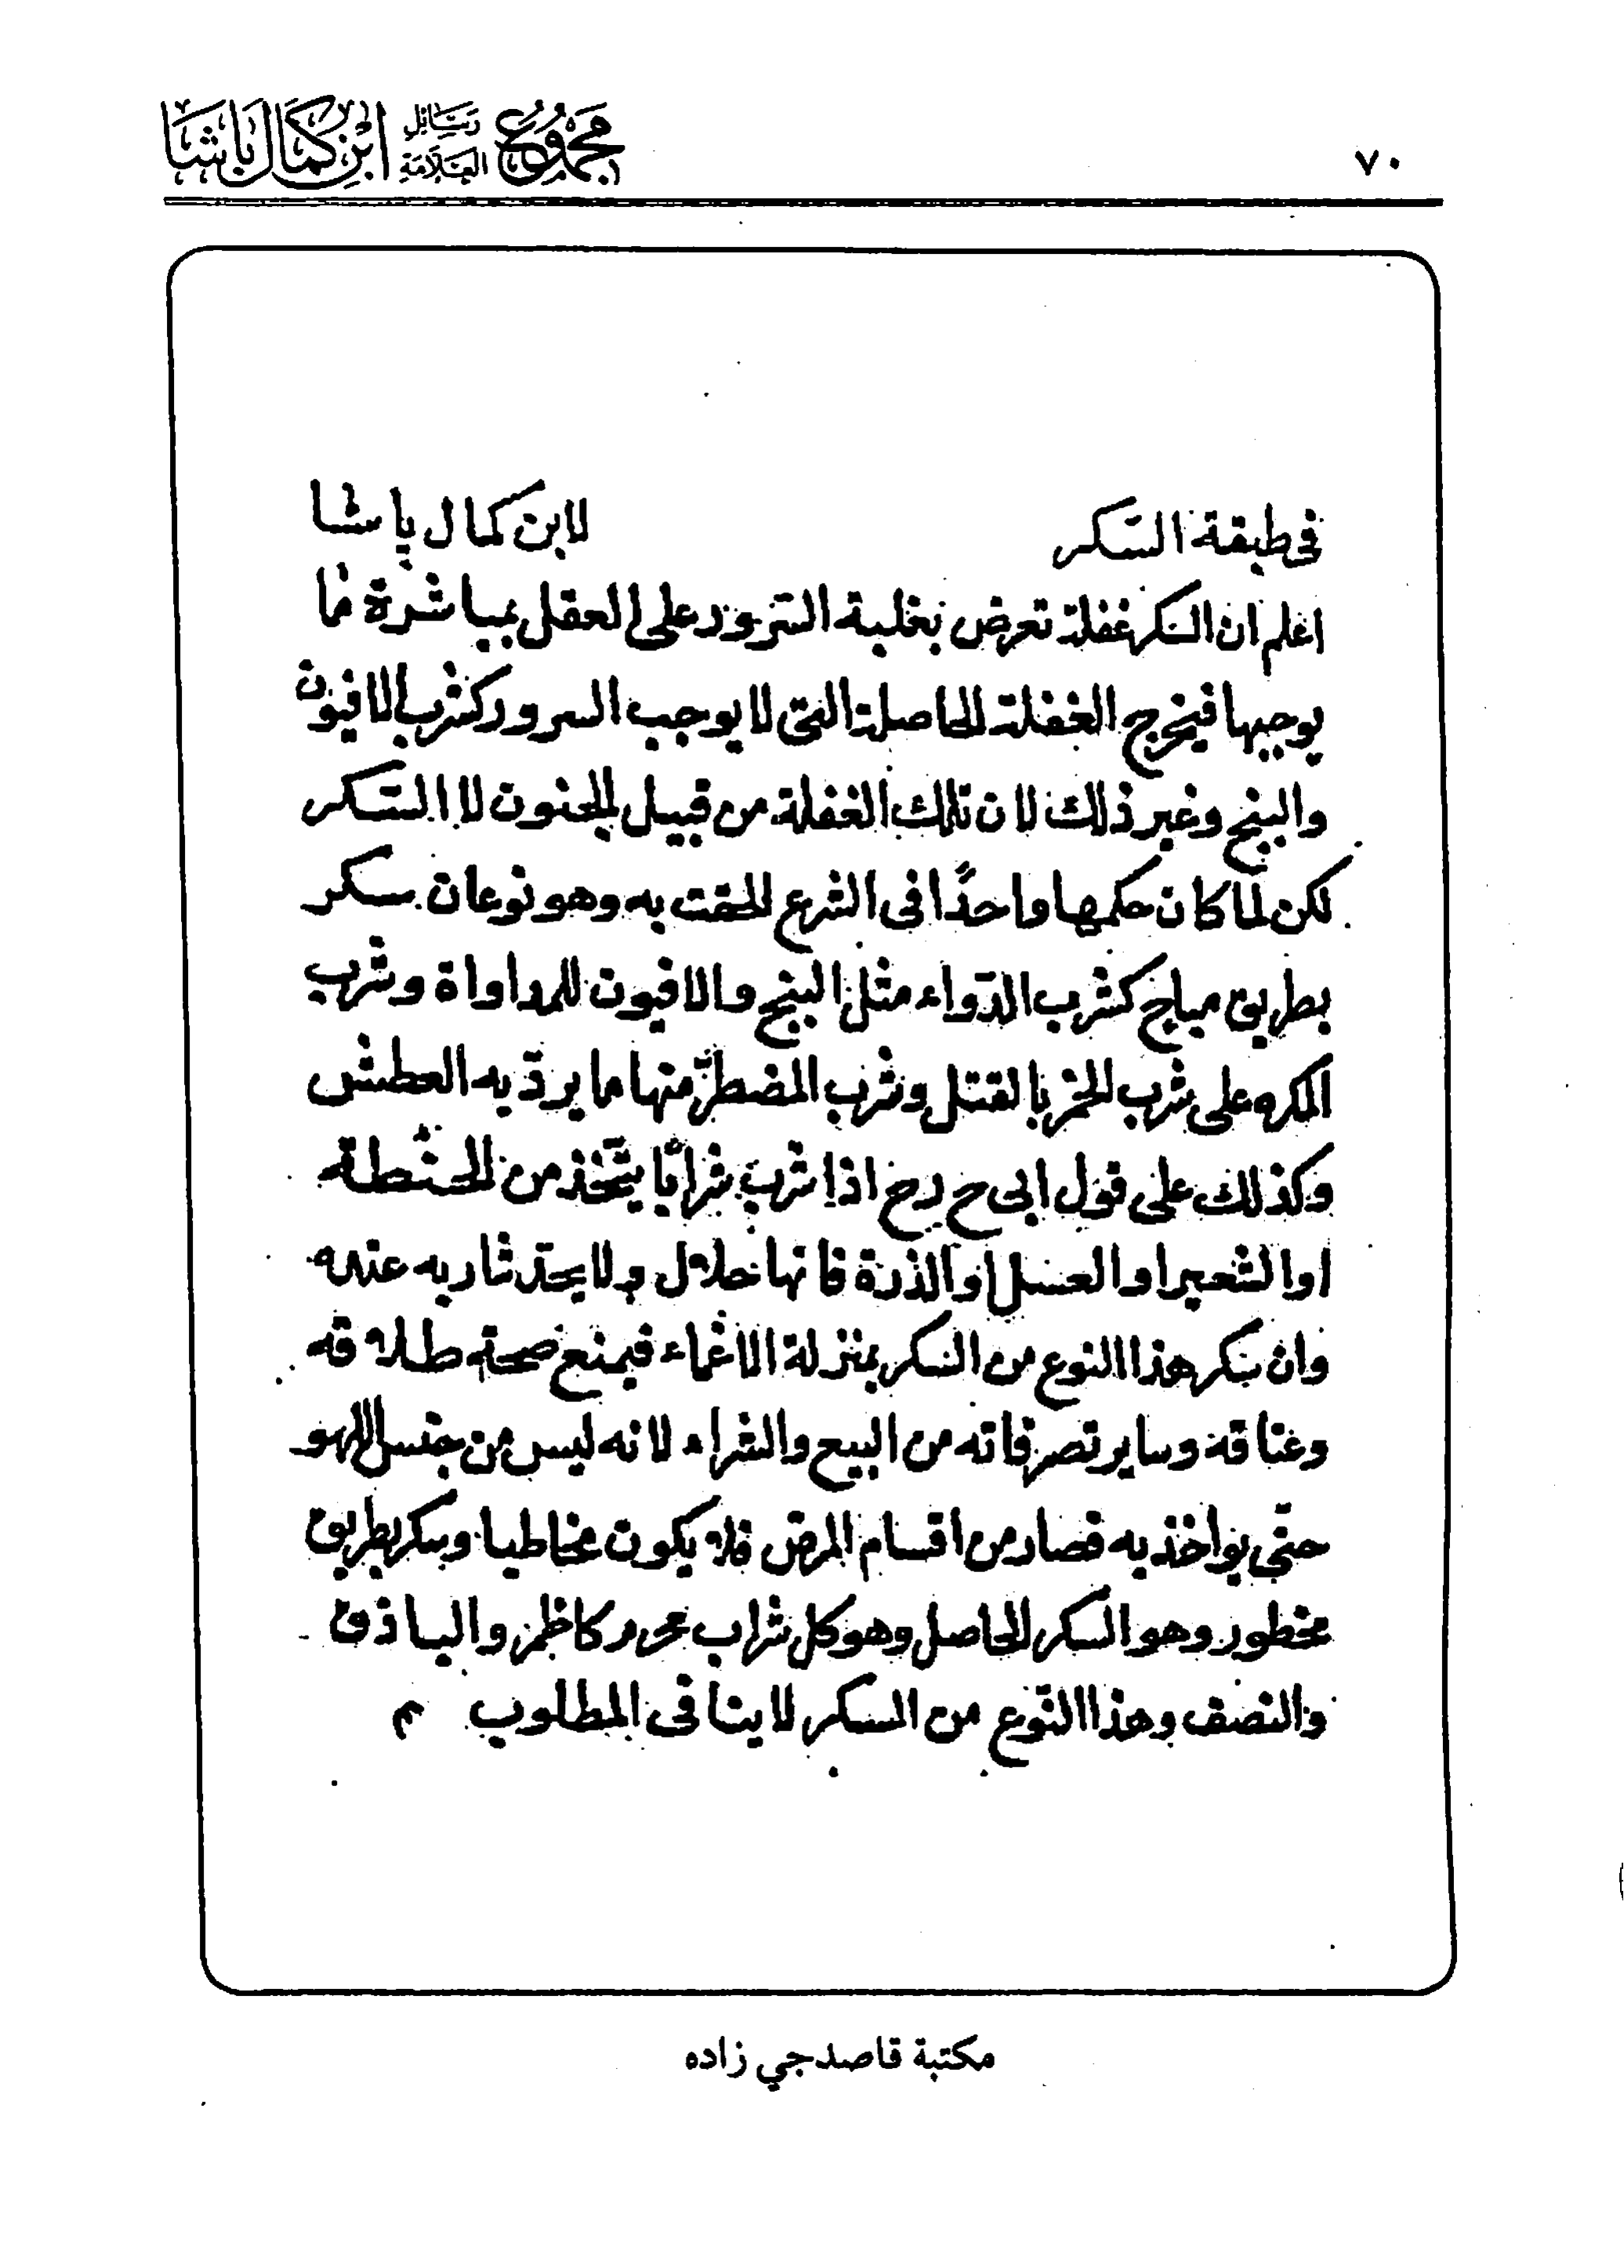 ٧٠ مجموع رسائل العلامة ابن كمال باشا
في طبقة السّكر لابن كمال پاشا
اعلم ان السكر غفلة تعرض بغلبة السّرور على العقل بمباشرة ما
يوجبها فيخرج الغفلة الحاصلة التى لا يوجب السرور كشرب الافيون
والبنج وغير ذلك لان تلك الغفلة من قبيل الجنون لا السّكر
لكن لما كان حكمها واحدًا فى الشرع الحقت به وهو نوعان سكر
بطريق مباح كشرب الدّواء مثل البنج والافيون للمداواة وشرب
المكره على شرب الخمر بالقتل وشرب المضطرّ منها ما يردّ به العطش
وكذلك على قول ابى ح رح اذا شرب شرابًا يتّخذ من الحنطة
او الشعير او العسل او الذرة فانها حلال ولا يحدّ شاربه عنده
وان سكر هذا النوع من السكر بمنزلة الاغماء فيمنع صحة طلاقه
وعتاقه وساير تصرفاته من البيع والشراء لانه ليس من جنس اللهو
حتّى يواخذ به فصار من اقسام المرض فلا يكون مخاطبا وسكر بطريق
محظور وهو السكر الحاصل وهو كل شراب محرم كالخمر والباذق
والنصف وهذا النّوع من السكر لا ينافى المطلوب م
مكتبة قاصدجي زاده